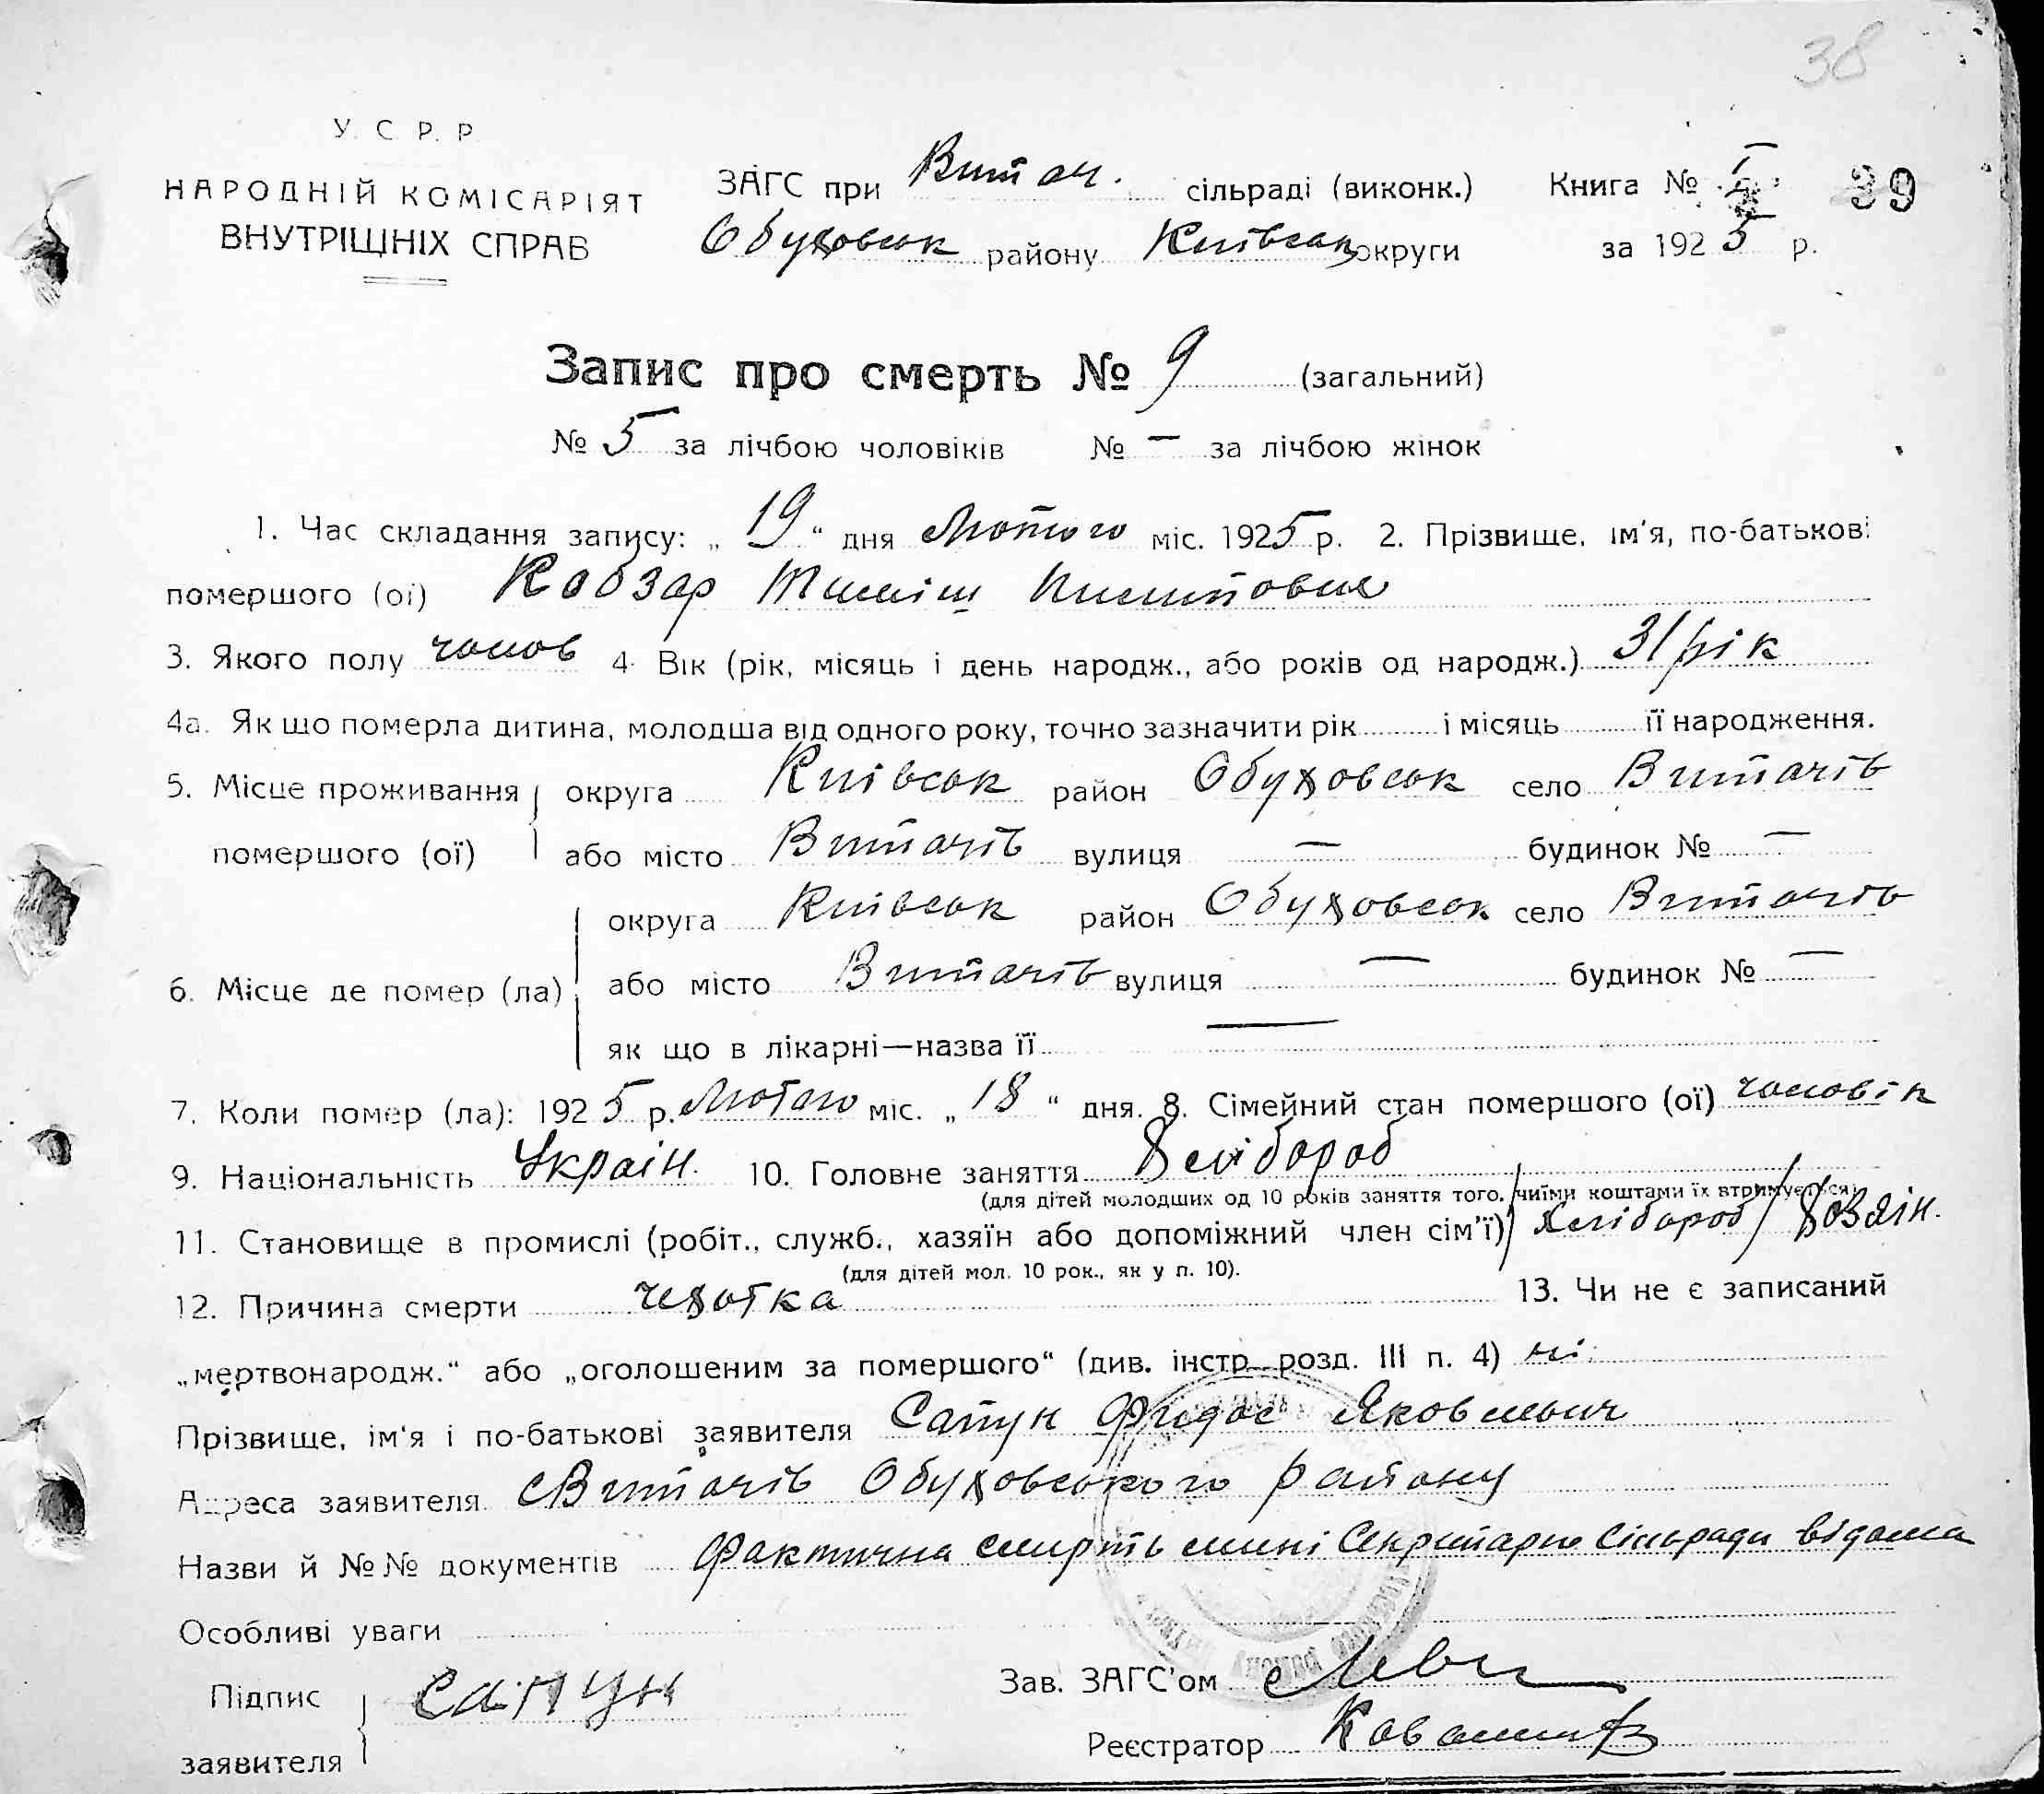 38
У. С. Р. Р.
НАРОДНІЙ КОМІСАРІЯТ
ВНУТРІШНІХ СПРАВ
ЗАГС при Витач. сільраді (виконк.)
Обуховськ району Київськ округи
Книга № 39
за 1925 р.
Запис про смерть № 9 (загальний)
№ 5 за лічбою чоловіків № — за лічбою жінок
1. Час складання запису: „19“ дня Лютого міс. 1925 р. 2. Прізвище, ім'я, по-батькові
помершого (ої) Кобзар Тиміш
3. Якого полу чолов 4. Вік (рік, місяць і день народж., або років од народж.) 31 рік
4а. Як що померла дитина, молодша від одного року, точно зазначити рік і місяць її народження.
5. Місце проживання округа Київськ район Обуховськ село Витачів
помершого (ої) або місто Витачів вулиця — будинок № —
округа Київськ район Обуховськ село Витачів
6. Місце де помер (ла) або місто Витачів вулиця — будинок № —
як що в лікарні—назва її —
7. Коли помер (ла): 1925 р. Лютого міс. „18“ дня. 8. Сімейний стан помершого (ої) чоловік
9. Національність Україн. 10. Головне заняття Хлібороб
(для дітей молодших од 10 років заняття того, чиїми коштами їх втримується)
11. Становище в промислі (робіт., служб., хазяїн або допоміжний член сім'ї) Хлібороб / Хозяін.
(для дітей мол. 10 рок., як у п. 10).
12. Причина смерти чехотка 13. Чи не є записаний
„мертвонародж.“ або „оголошеним за помершого“ (див. інстр. розд. III п. 4) ні.
Прізвище, ім'я і по-батькові заявителя Сапун Яковлевич
Адреса заявителя с Витачів Обуховського району
Назви й №№ документів Фактична смерть мині Секритарю Сільради відома
Особливі уваги
Підпис Сапун
заявителя
Зав. ЗАГС'ом
Реєстратор